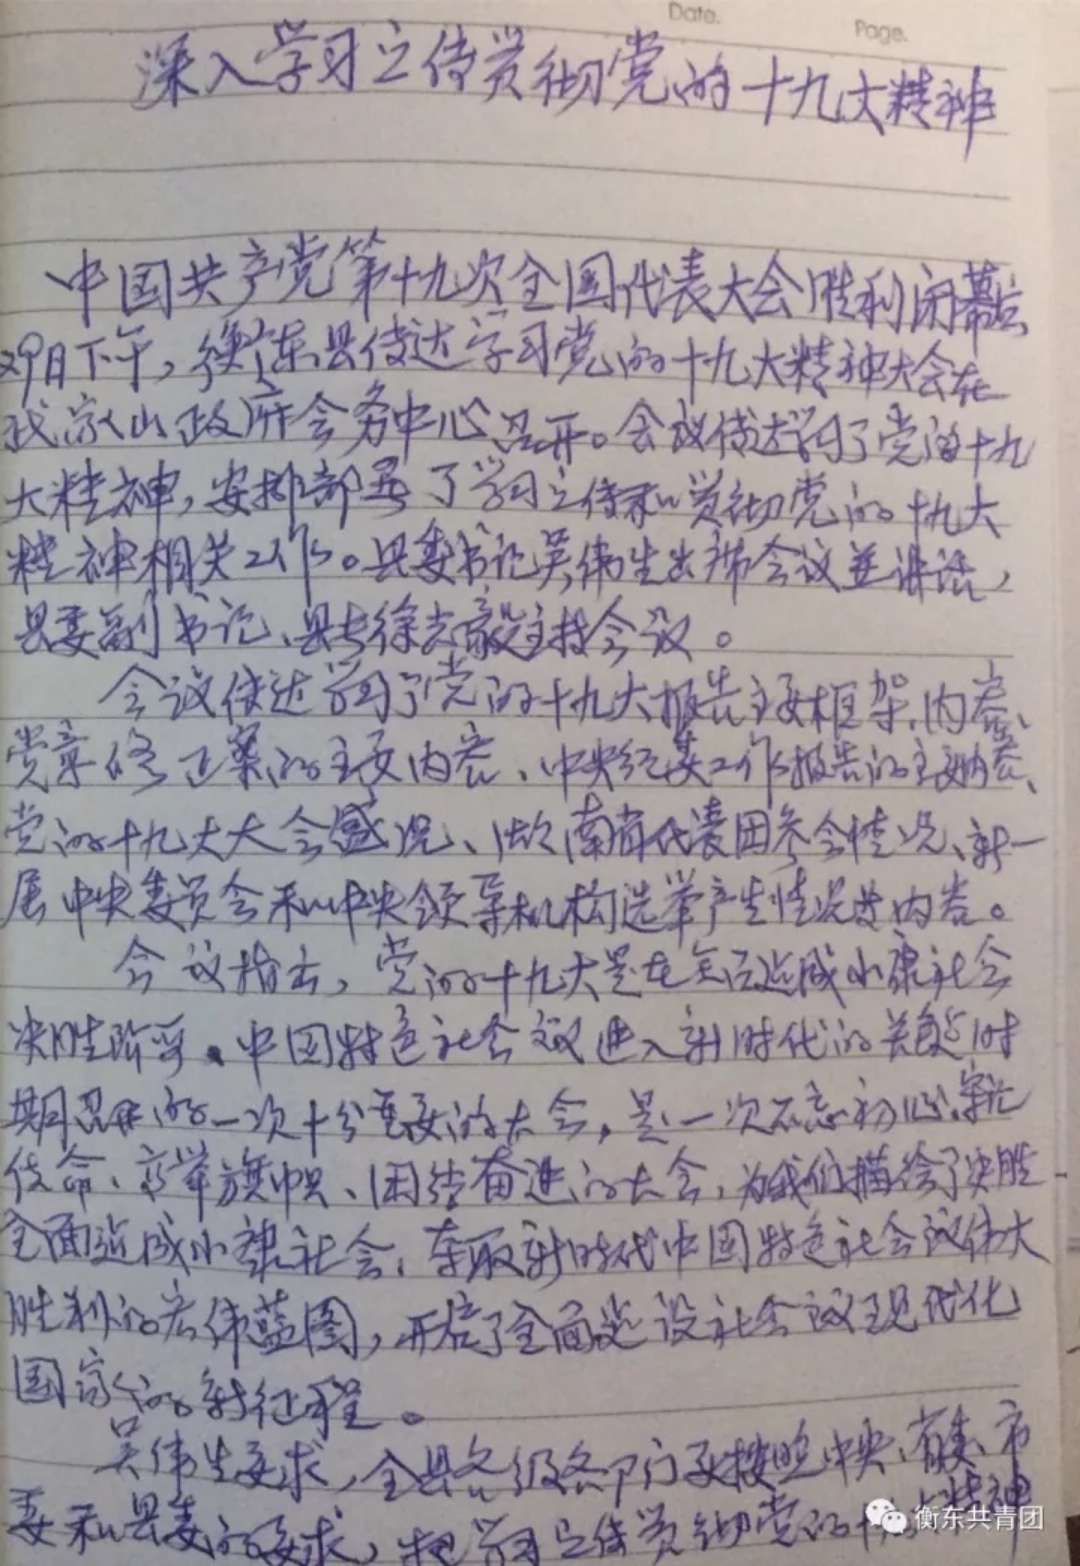 Date.
Page.
深入学习宣传贯彻党的十九大精神
中国共产党第十九次全国代表大会胜利闭幕后
29日下午，衡东县传达学习党的十九大精神大会在
武家山政府会务中心召开。会议传达学习了党的十九
大精神，安排部署了学习宣传和贯彻党的十九大
精神相关工作。县委书记吴伟生出席会议并讲话，
县委副书记、县长徐志毅主持会议。
会议传达学习了党的十九大报告主要框架、内容、
党章修正案的主要内容、中央纪委工作报告的主要内容、
党的十九大大会盛况、湖南省代表团参会情况、新一
届中央委员会和中央领导机构选举产生情况等内容。
会议指出，党的十九大是在全面建成小康社会
决胜阶段、中国特色社会主义进入新时代的关键时
期召开的一次十分重要的大会，是一次不忘初心、牢记
使命、高举旗帜、团结奋进的大会，为我们描绘了决胜
全面建成小康社会，夺取新时代中国特色社会主义伟大
胜利的宏伟蓝图，开启了全面建设社会主义现代化
国家的新征程。
吴伟生要求，全县各级各部门要按照中央、省委、市
委和县委的要求，把学习宣传贯彻党的十九大精神
衡东共青团